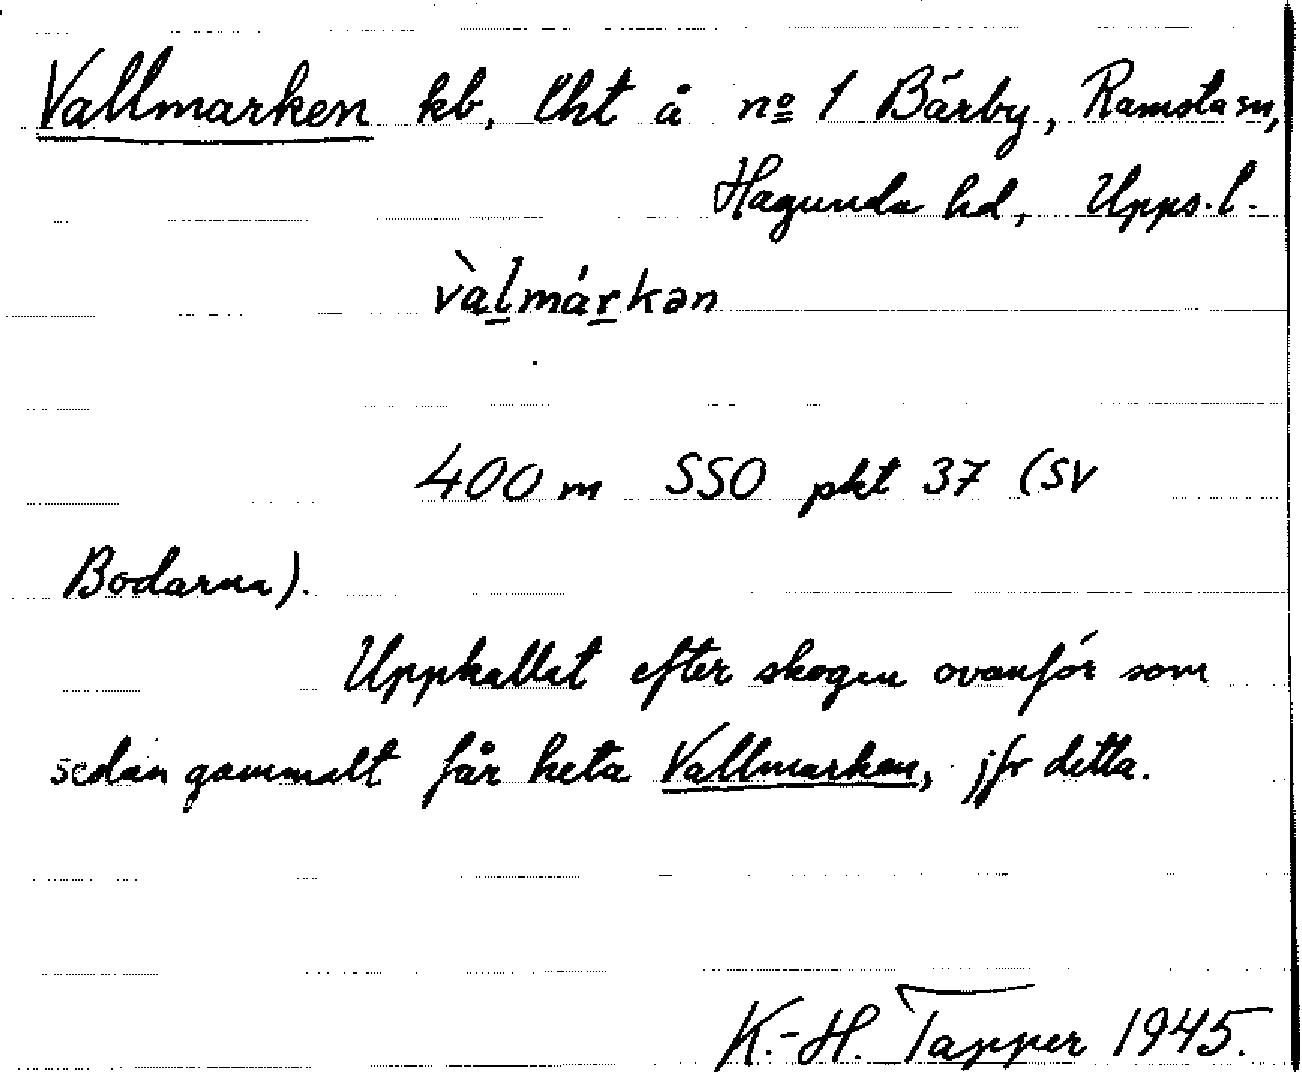 Vallmarken kb, lht å nº 1 Bärby, Ramsta sn,
Hagunda hd, Upps. l.
vàlmárkən
400 m SSO pkt 37 (SV
Bodarna).
Uppkallat efter skogen ovanför som
sedan gammalt får heta Vallmarken, jfr detta.
K.-H. Tapper 1945.